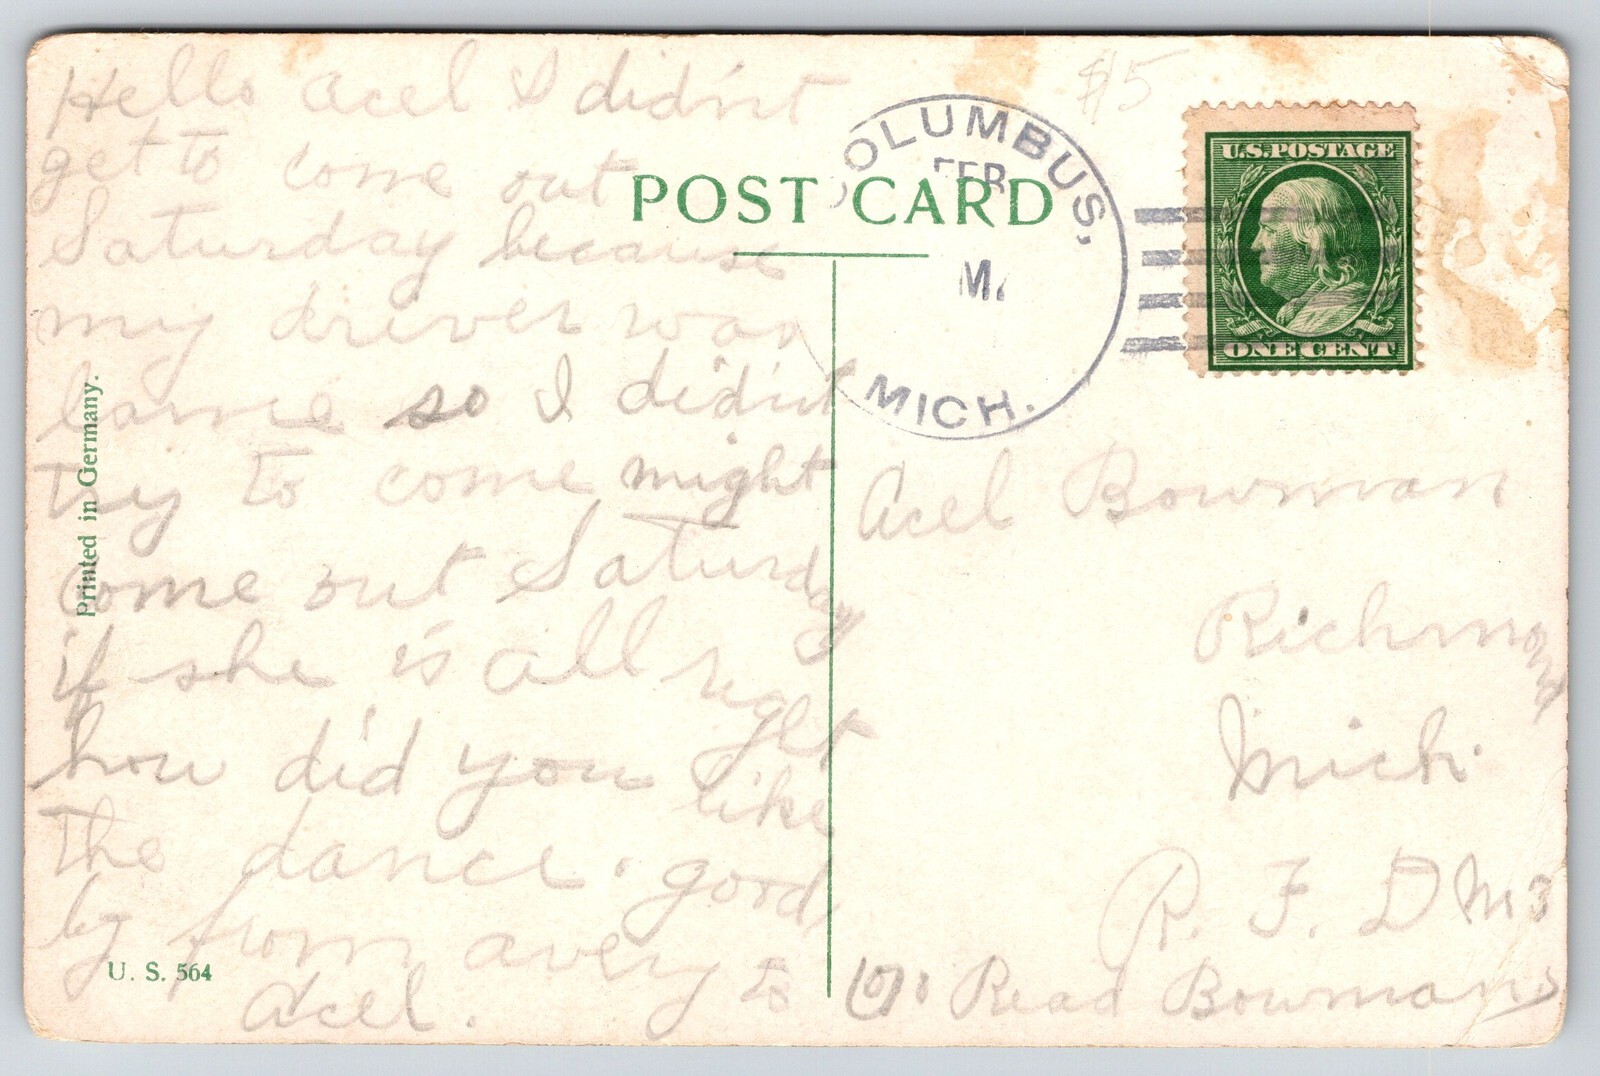 Hello Acel I didn't
get to come out
Saturday because
my driver was
lame so I didn't
try to come might
come out Saturday
if she is all right
how did you get
like
the dance. good
by from avery to
Acel.
Printed in Germany.
U. S. 564
POST CARD
$5
COLUMBUS,
FEB
MICH.
U.S.POSTAGE
ONE CENT
Acel Bowman
Richmond
Mich.
R. F. D
Read Bowmans